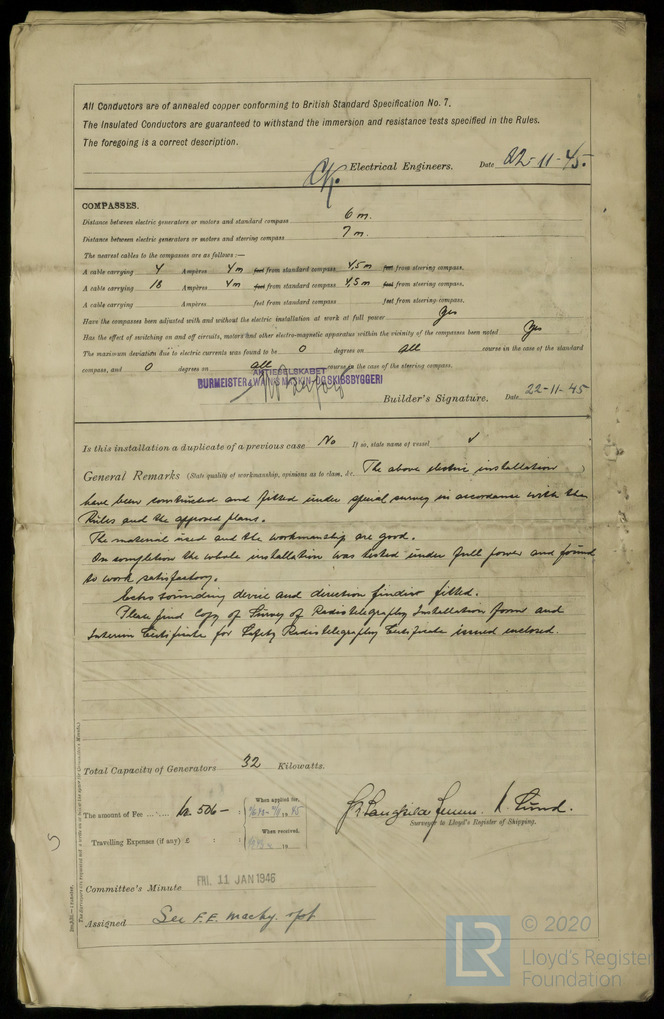 All Conductors are of annealed copper conforming to British Standard Specification No. 7.
The Insulated Conductors are guaranteed to withstand the immersion and resistance tests specified in the Rules.
The foregoing is a correct description.
Electrical Engineers. Date 22-11-45.
COMPASSES.
Distance between electric generators or motors and standard compass 6 m.
Distance between electric generators or motors and steering compass 7 m.
The nearest cables to the compasses are as follows:—
A cable carrying 4 Ampères 4 m feet from standard compass 4,5 m feet from steering compass.
A cable carrying 18 Ampères 4 m feet from standard compass 4,5 m feet from steering compass.
A cable carrying Ampères feet from standard compass feet from steering compass.
Have the compasses been adjusted with and without the electric installation at work at full power Yes
Has the effect of switching on and off circuits, motors and other electro-magnetic apparatus within the vicinity of the compasses been noted Yes
The maximum deviation due to electric currents was found to be 0 degrees on all course in the case of the standard
compass, and 0 degrees on all course in the case of the steering compass.
AKTIESELSKABET
BURMEISTER & WAIN'S MASKIN- OG SKIBSBYGGERI
Builder's Signature. Date 22-11-45
Is this installation a duplicate of a previous case No If so, state name of vessel
General Remarks (State quality of workmanship, opinions as to class, &c. The above electric installation )
have been constructed and fitted under special survey in accordance with the
Rules and the approved plans.
The material used and the workmanship are good.
On completion the whole installation was tested under full power and found
to work satisfactory.
Echo sounding device and direction finder fitted.
Please find Copy of Survey of Radiotelegraphy Installation form and
Interim Certificate for Safety Radiotelegraphy Certificate issued enclosed.
Total Capacity of Generators 32 Kilowatts.
The amount of Fee Kr. 506—
When applied for,
Travelling Expenses (if any) £
When received,
Surveyor to Lloyd's Register of Shipping.
Committee's Minute FRI. 11 JAN 1946
Assigned See F.E. machy. rpt
© 2020
LR
Lloyd's Register
Foundation